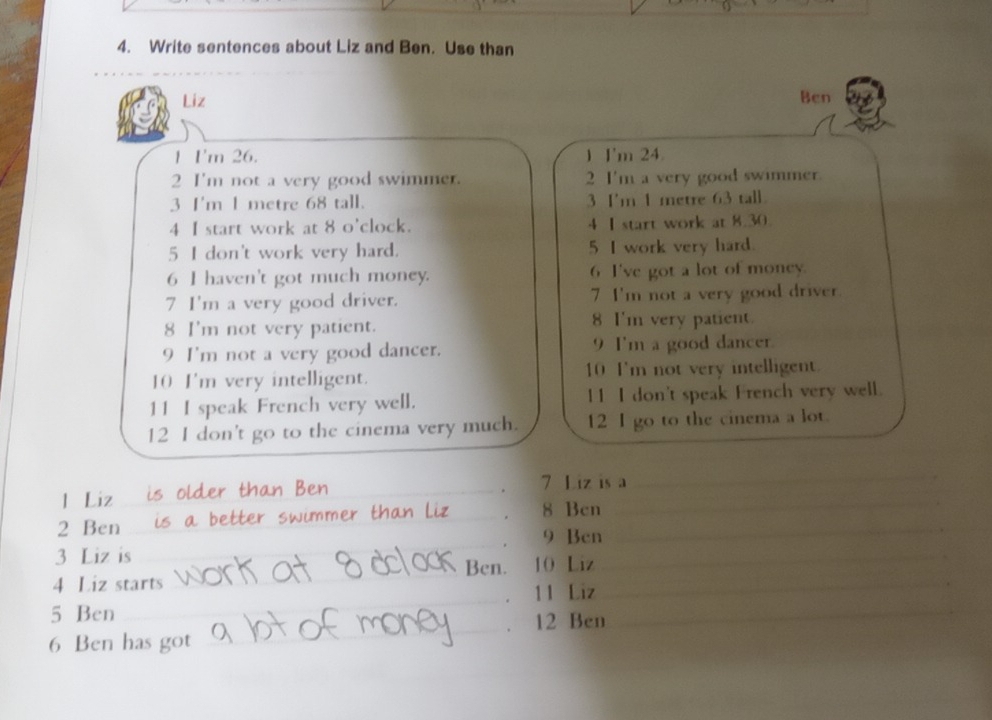 4. Write sentences about Liz and Ben. Use than
Liz
1 I'm 26.
2 I'm not a very good swimmer.
3 I'm 1 metre 68 tall.
4 I start work at 8 o'clock.
5 I don't work very hard.
6 I haven't got much money.
7 I'm a very good driver.
8 I'm not very patient.
9 I'm not a very good dancer.
10 I'm very intelligent.
11 I speak French very well.
12 I don't go to the cinema very much.
Ben
1 I'm 24.
2 I'm a very good swimmer.
3 I'm 1 metre 63 tall.
4 I start work at 8.30.
5 I work very hard.
6 I've got a lot of money.
7 I'm not a very good driver.
8 I'm very patient.
9 I'm a good dancer.
10 I'm not very intelligent.
11 I don't speak French very well.
12 I go to the cinema a lot.
1 Liz is older than Ben .
2 Ben is a better swimmer than Liz .
3 Liz is .
4 Liz starts work at 8 oclock Ben.
5 Ben .
6 Ben has got a lot of money .
7 Liz is a
8 Ben
9 Ben
10 Liz
11 Liz
12 Ben